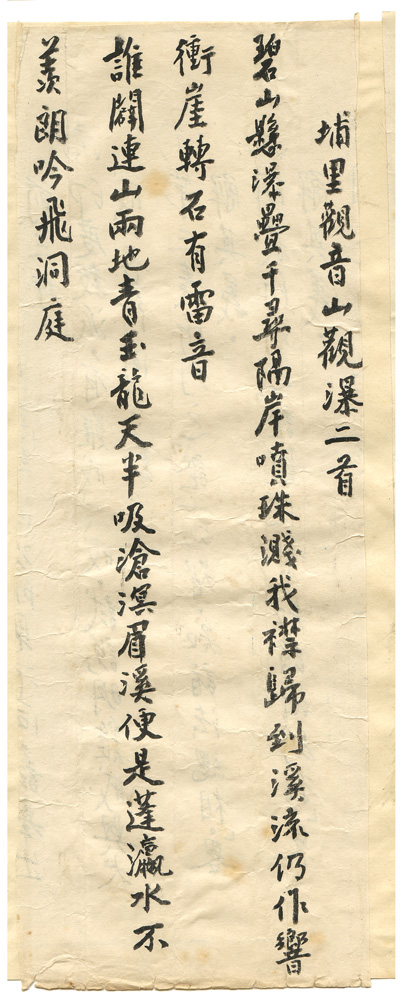 埔里觀音山觀瀑二首
碧山懸瀑疊千尋隔岸噴珠濺我襟歸到溪流仍作響
衝崖轉石有雷音
誰闢連山兩地青玉龍天半吸滄溟眉溪便是蓬瀛水不
羨朗吟飛洞庭